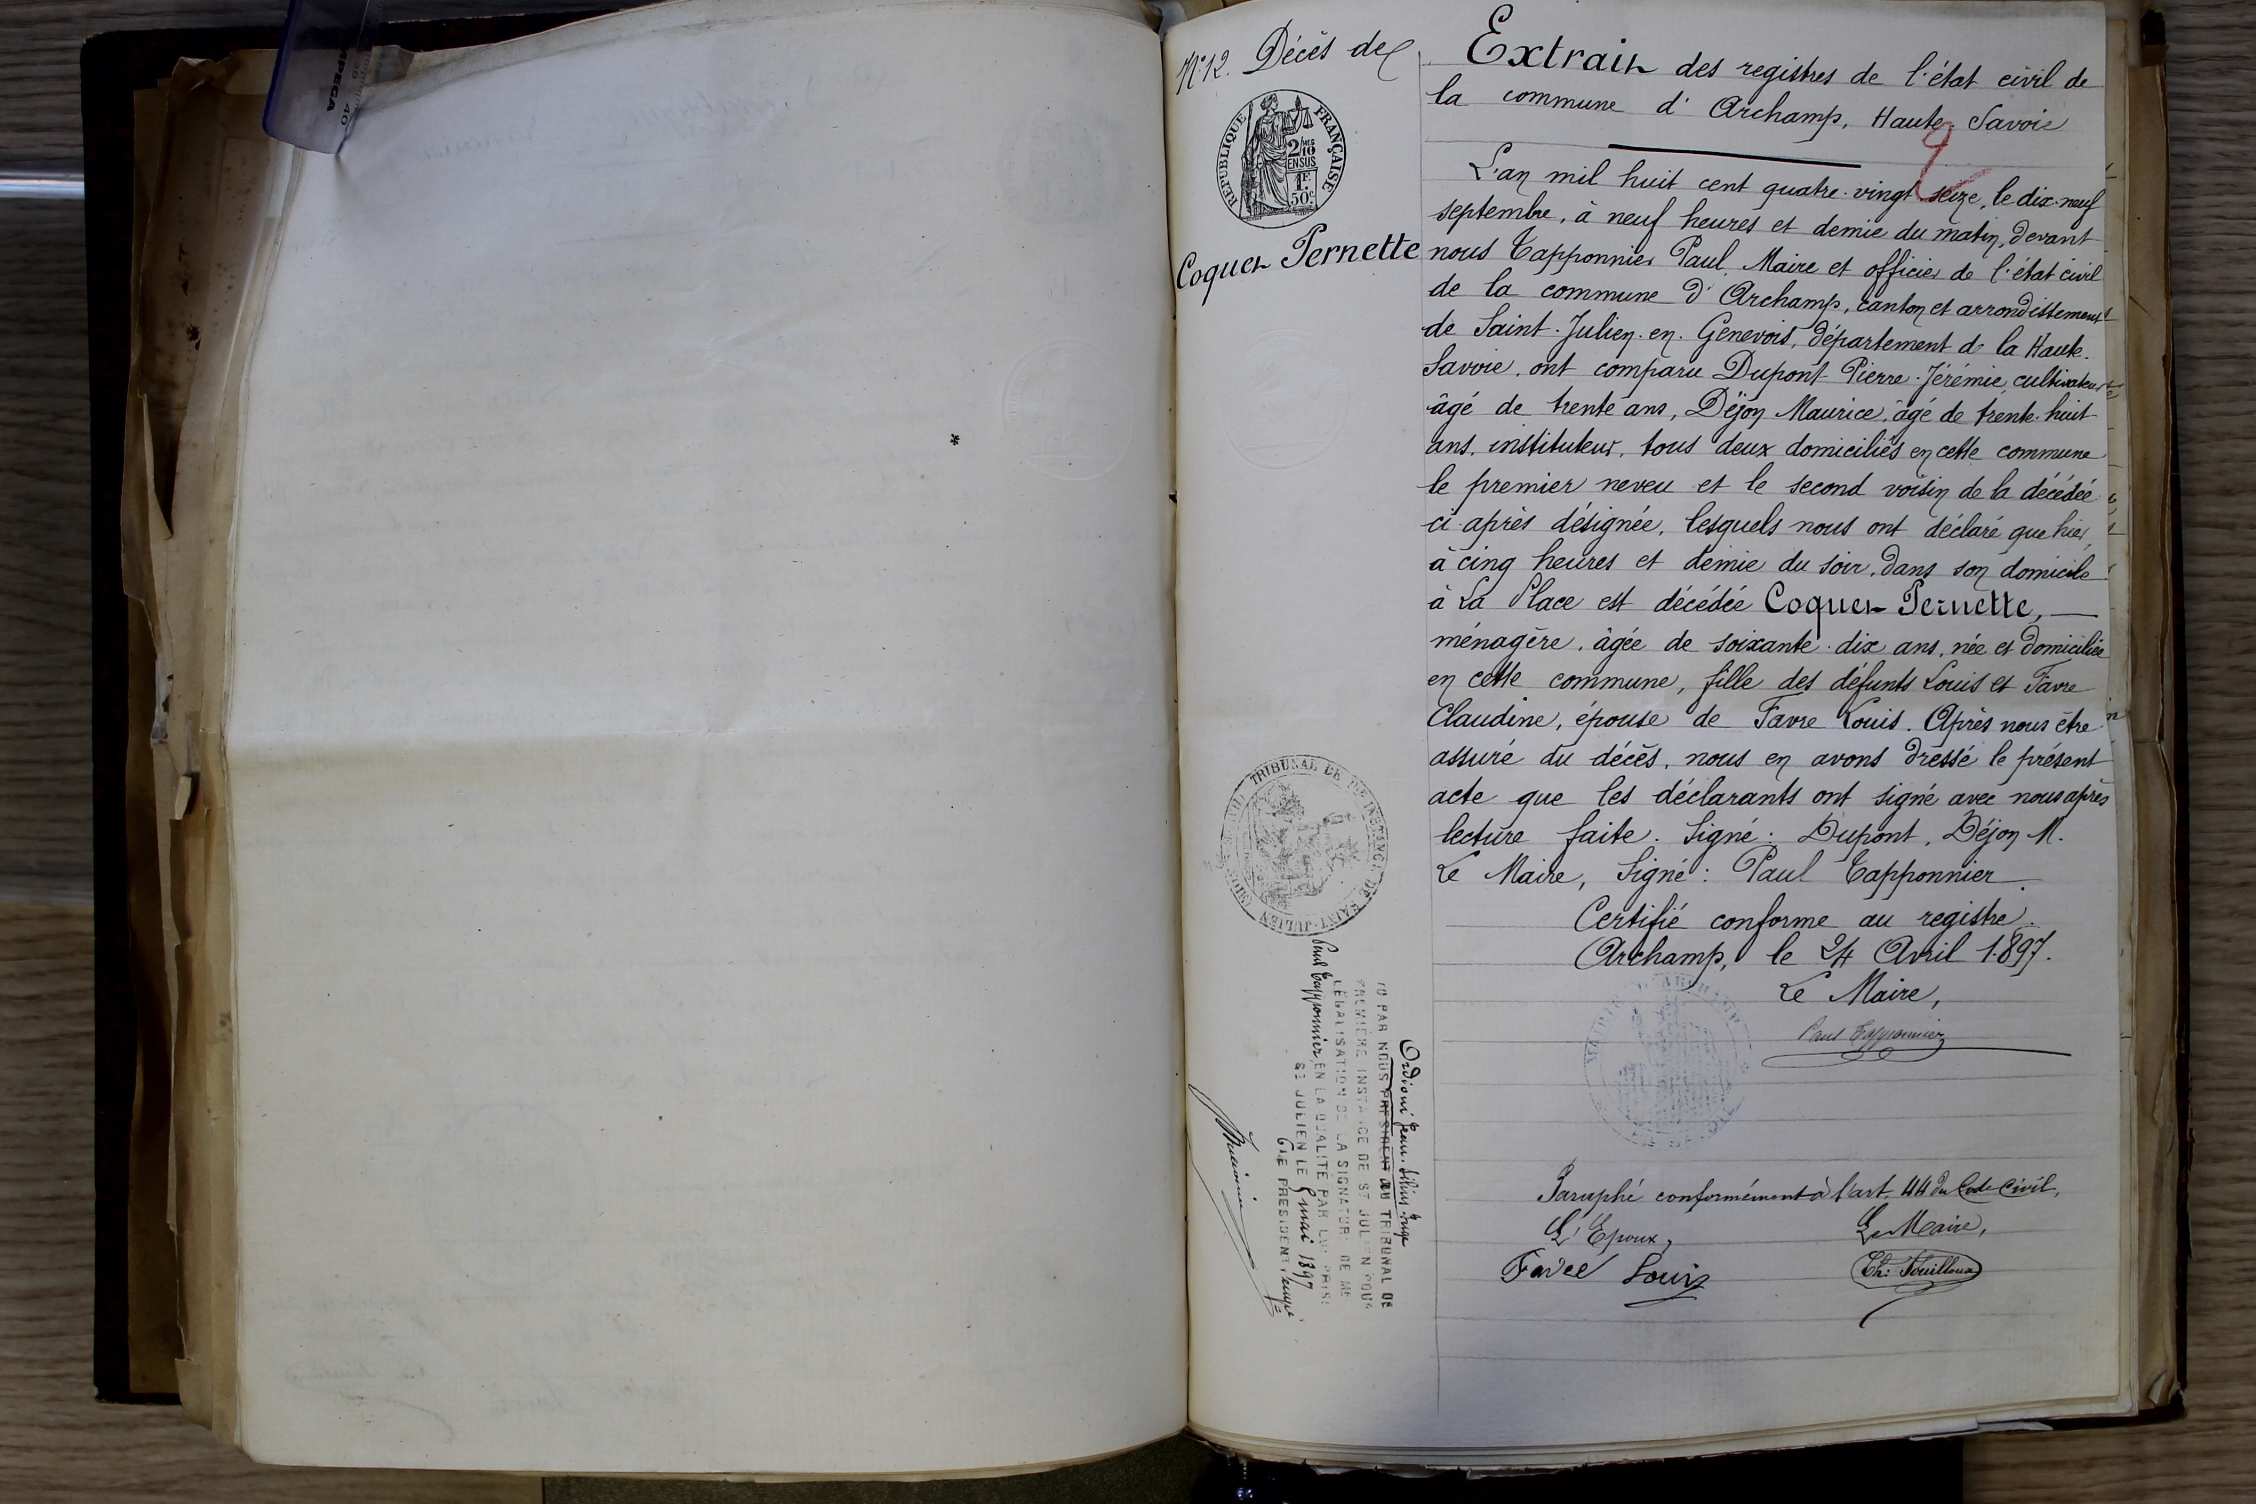 N° 12. Décès de
RÉPUBLIQUE FRANÇAISE
2/10
EN SUS
1F.
50c
Coquet Pernette
Extrait des registres de l'état civil de
la commune d'Archamp, Haute-Savoie
9
L'an mil huit cent quatre-vingt-seize, le dix-neuf
septembre, à neuf heures et demie du matin, devant
nous Tapponnier Paul, Maire et officier de l'état civil
de la commune d'Archamp, canton et arrondissement
de Saint-Julien-en-Genevois, département de la Haute-
Savoie, ont comparu Dupont Pierre-Jérémie, cultivateur
âgé de trente ans, Déjon Maurice, âgé de trente-huit
ans, instituteur, tous deux domiciliés en cette commune
le premier neveu et le second voisin de la décédée
ci-après désignée, lesquels nous ont déclaré que hier,
à cinq heures et demie du soir, dans son domicile
à La Place est décédée Coquet Pernette,
ménagère, âgée de soixante-dix ans, née et domiciliée
en cette commune, fille des défunts Louis et Favre
Claudine, épouse de Favre Louis. Après nous être
assuré du décès, nous en avons dressé le présent
acte que les déclarants ont signé avec nous après
lecture faite. Signé: Dupont, Déjon M.
Le Maire, Signé: Paul Tapponnier.
Certifié conforme au registre.
Archamp, le 24 Avril 1897.
Le Maire,
Paul Tapponnier
Paraphé conformément à l'art. 44 du Code Civil,
L'Epoux, Le Maire,
Favre Louis Ch: Fouilloux
TRIBUNAL DE 1re INSTANCE DE SAINT-JULIEN
Ordioni Jean juge
VU PAR NOUS PRÉSIDENT DU TRIBUNAL DE
PREMIÈRE INSTANCE DE ST JULIEN POUR
LÉGALISATION DE LA SIGNATURE DE MR
Paul Tapponnier, EN LA QUALITÉ PAR LUI PRISE
ST JULIEN LE 6 mai 1897
LE PRÉSIDENT